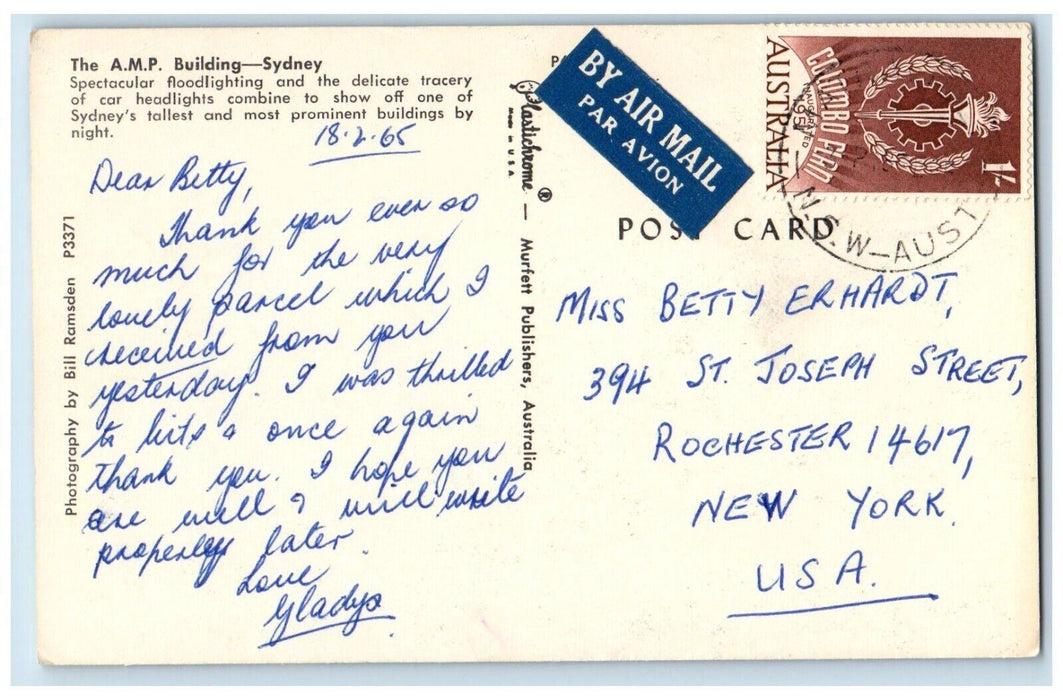 The A.M.P. Building—Sydney
Spectacular floodlighting and the delicate tracery
of car headlights combine to show off one of
Sydney's tallest and most prominent buildings by
night.
18·2·65
Dear Betty,
Thank you ever so
much for the very
lovely parcel which I
received from you
yesterday. I was thrilled
to bits & once again
thank you. I hope you
are well & will write
properly later.
Love
Gladys
Photography by Bill Ramsden P3371
Plastichrome ®
MADE IN U.S.A.
— Murfett Publishers, Australia
BY AIR MAIL
PAR AVION
POST CARD
AUSTRALIA
COLOMBO PLAN
INAUGURATED
1951
1/-
N.S.W-AUST
MISS BETTY ERHARDT,
394 ST. JOSEPH STREET,
ROCHESTER 14617,
NEW YORK.
USA.